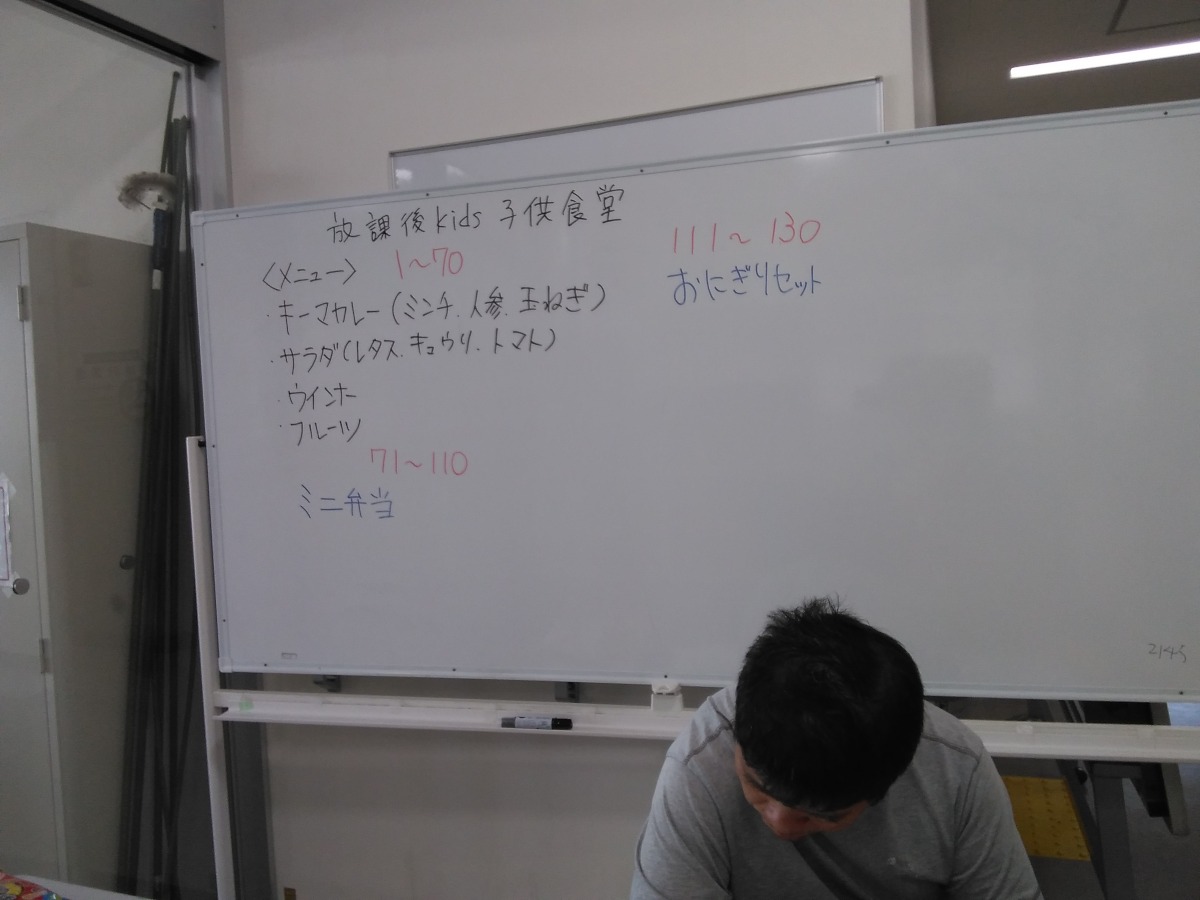 放課後kids 子供食堂
<メニュー> 1~70
・キーマカレー(ミンチ、人参、玉ねぎ)
・サラダ(レタス、キュウリ、トマト)
・ウインナー
・フルーツ
71~110
ミニ弁当
111~130
おにぎりセット